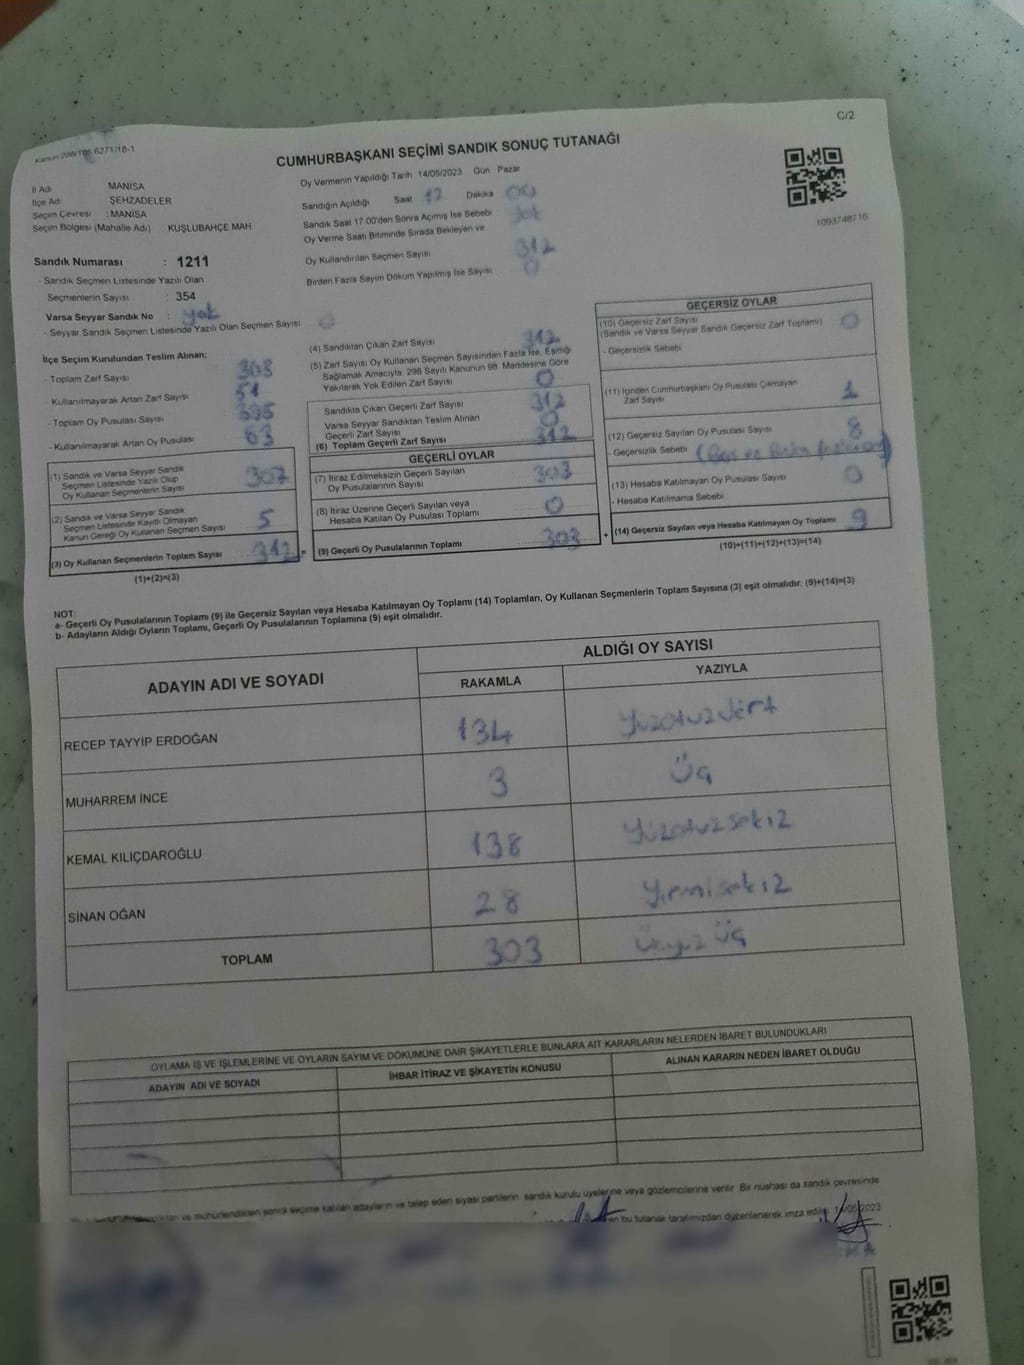 C/2
6271/18-1
CUMHURBAŞKANI SEÇİMİ SANDIK SONUÇ TUTANAĞI
İl Adı MANİSA
İlçe Adı ŞEHZADELER
Seçim Çevresi : MANİSA
Seçim Bölgesi (Mahalle Adı) KUŞLUBAHÇE MAH
Sandık Numarası : 1211
- Sandık Seçmen Listesinde Yazılı Olan
Seçmenlerin Sayısı : 354
Varsa Seyyar Sandık No : yok
- Seyyar Sandık Seçmen Listesinde Yazılı Olan Seçmen Sayısı 0
Oy Vermenin Yapıldığı Tarih 14/05/2023 Gün Pazar
Sandığın Açıldığı Saat 17 Dakika 00
Sandık Saat 17:00'den Sonra Açılmış İse Sebebi
Oy Verme Saati Bitiminde Sırada Bekleyen ve
Oy Kullandırılan Seçmen Sayısı 312
Birden Fazla Sayım Döküm Yapılmış İse Sayısı 0
1093748716
İlçe Seçim Kurulundan Teslim Alınan;
- Toplam Zarf Sayısı 363
- Kullanılmayarak Artan Zarf Sayısı 51
- Toplam Oy Pusulası Sayısı
- Kullanılmayarak Artan Oy Pusulası 63
(1) Sandık ve Varsa Seyyar Sandık
Seçmen Listesinde Yazılı Olup
Oy Kullanan Seçmenlerin Sayısı 307
(2) Sandık ve Varsa Seyyar Sandık
Seçmen Listesinde Kayıtlı Olmayan
Kanun Gereği Oy Kullanan Seçmen Sayısı 5
(3) Oy Kullanan Seçmenlerin Toplam Sayısı 312 =
(1)+(2)=(3)
(4) Sandıktan Çıkan Zarf Sayısı 312
(5) Zarf Sayısı Oy Kullanan Seçmen Sayısından Fazla İse, Eşitliği
Sağlamak Amacıyla, 298 Sayılı Kanunun 98. Maddesine Göre
Yakılarak Yok Edilen Zarf Sayısı 0
Sandıkta Çıkan Geçerli Zarf Sayısı 312
Varsa Seyyar Sandıktan Teslim Alınan
Geçerli Zarf Sayısı 0
(6) Toplam Geçerli Zarf Sayısı 312
GEÇERLİ OYLAR
(7) İtiraz Edilmeksizin Geçerli Sayılan
Oy Pusulalarının Sayısı 303
(8) İtiraz Üzerine Geçerli Sayılan veya
Hesaba Katılan Oy Pusulası Toplamı 0
(9) Geçerli Oy Pusulalarının Toplamı 303 +
GEÇERSİZ OYLAR
(10) Geçersiz Zarf Sayısı
(Sandık ve Varsa Seyyar Sandık Geçersiz Zarf Toplamı) 0
- Geçersizlik Sebebi
(11) İçinden Cumhurbaşkanı Oy Pusulası Çıkmayan
Zarf Sayısı 1
(12) Geçersiz Sayılan Oy Pusulası Sayısı 8
- Geçersizlik Sebebi
(13) Hesaba Katılmayan Oy Pusulası Sayısı 0
- Hesaba Katılmama Sebebi
(14) Geçersiz Sayılan veya Hesaba Katılmayan Oy Toplamı 9
(10)+(11)+(12)+(13)=(14)
NOT:
a- Geçerli Oy Pusulalarının Toplamı (9) ile Geçersiz Sayılan veya Hesaba Katılmayan Oy Toplamı (14) Toplamları, Oy Kullanan Seçmenlerin Toplam Sayısına (3) eşit olmalıdır. (9)+(14)=(3)
b- Adayların Aldığı Oyların Toplamı, Geçerli Oy Pusulalarının Toplamına (9) eşit olmalıdır.
ADAYIN ADI VE SOYADI
ALDIĞI OY SAYISI
RAKAMLA YAZIYLA
RECEP TAYYİP ERDOĞAN 134 Yüzotuzdört
MUHARREM İNCE 3 Üç
KEMAL KILIÇDAROĞLU 138 Yüzotuzsekiz
SİNAN OĞAN 28 Yirmisekiz
TOPLAM 303 Üçyüz Üç
OYLAMA İŞ VE İŞLEMLERİNE VE OYLARIN SAYIM VE DÖKÜMÜNE DAİR ŞİKAYETLERLE BUNLARA AİT KARARLARIN NELERDEN İBARET BULUNDUKLARI
ADAYIN ADI VE SOYADI İHBAR İTİRAZ VE ŞİKAYETİN KONUSU ALINAN KARARIN NEDEN İBARET OLDUĞU
mühürlendikten sonra seçime katılan adayların ve talep eden siyasi partilerin sandık kurulu üyelerine veya gözlemcilerine verilir. Bir nüshası da sandık çevresinde
bu tutanak tarafımızdan düzenlenerek imza edildi.